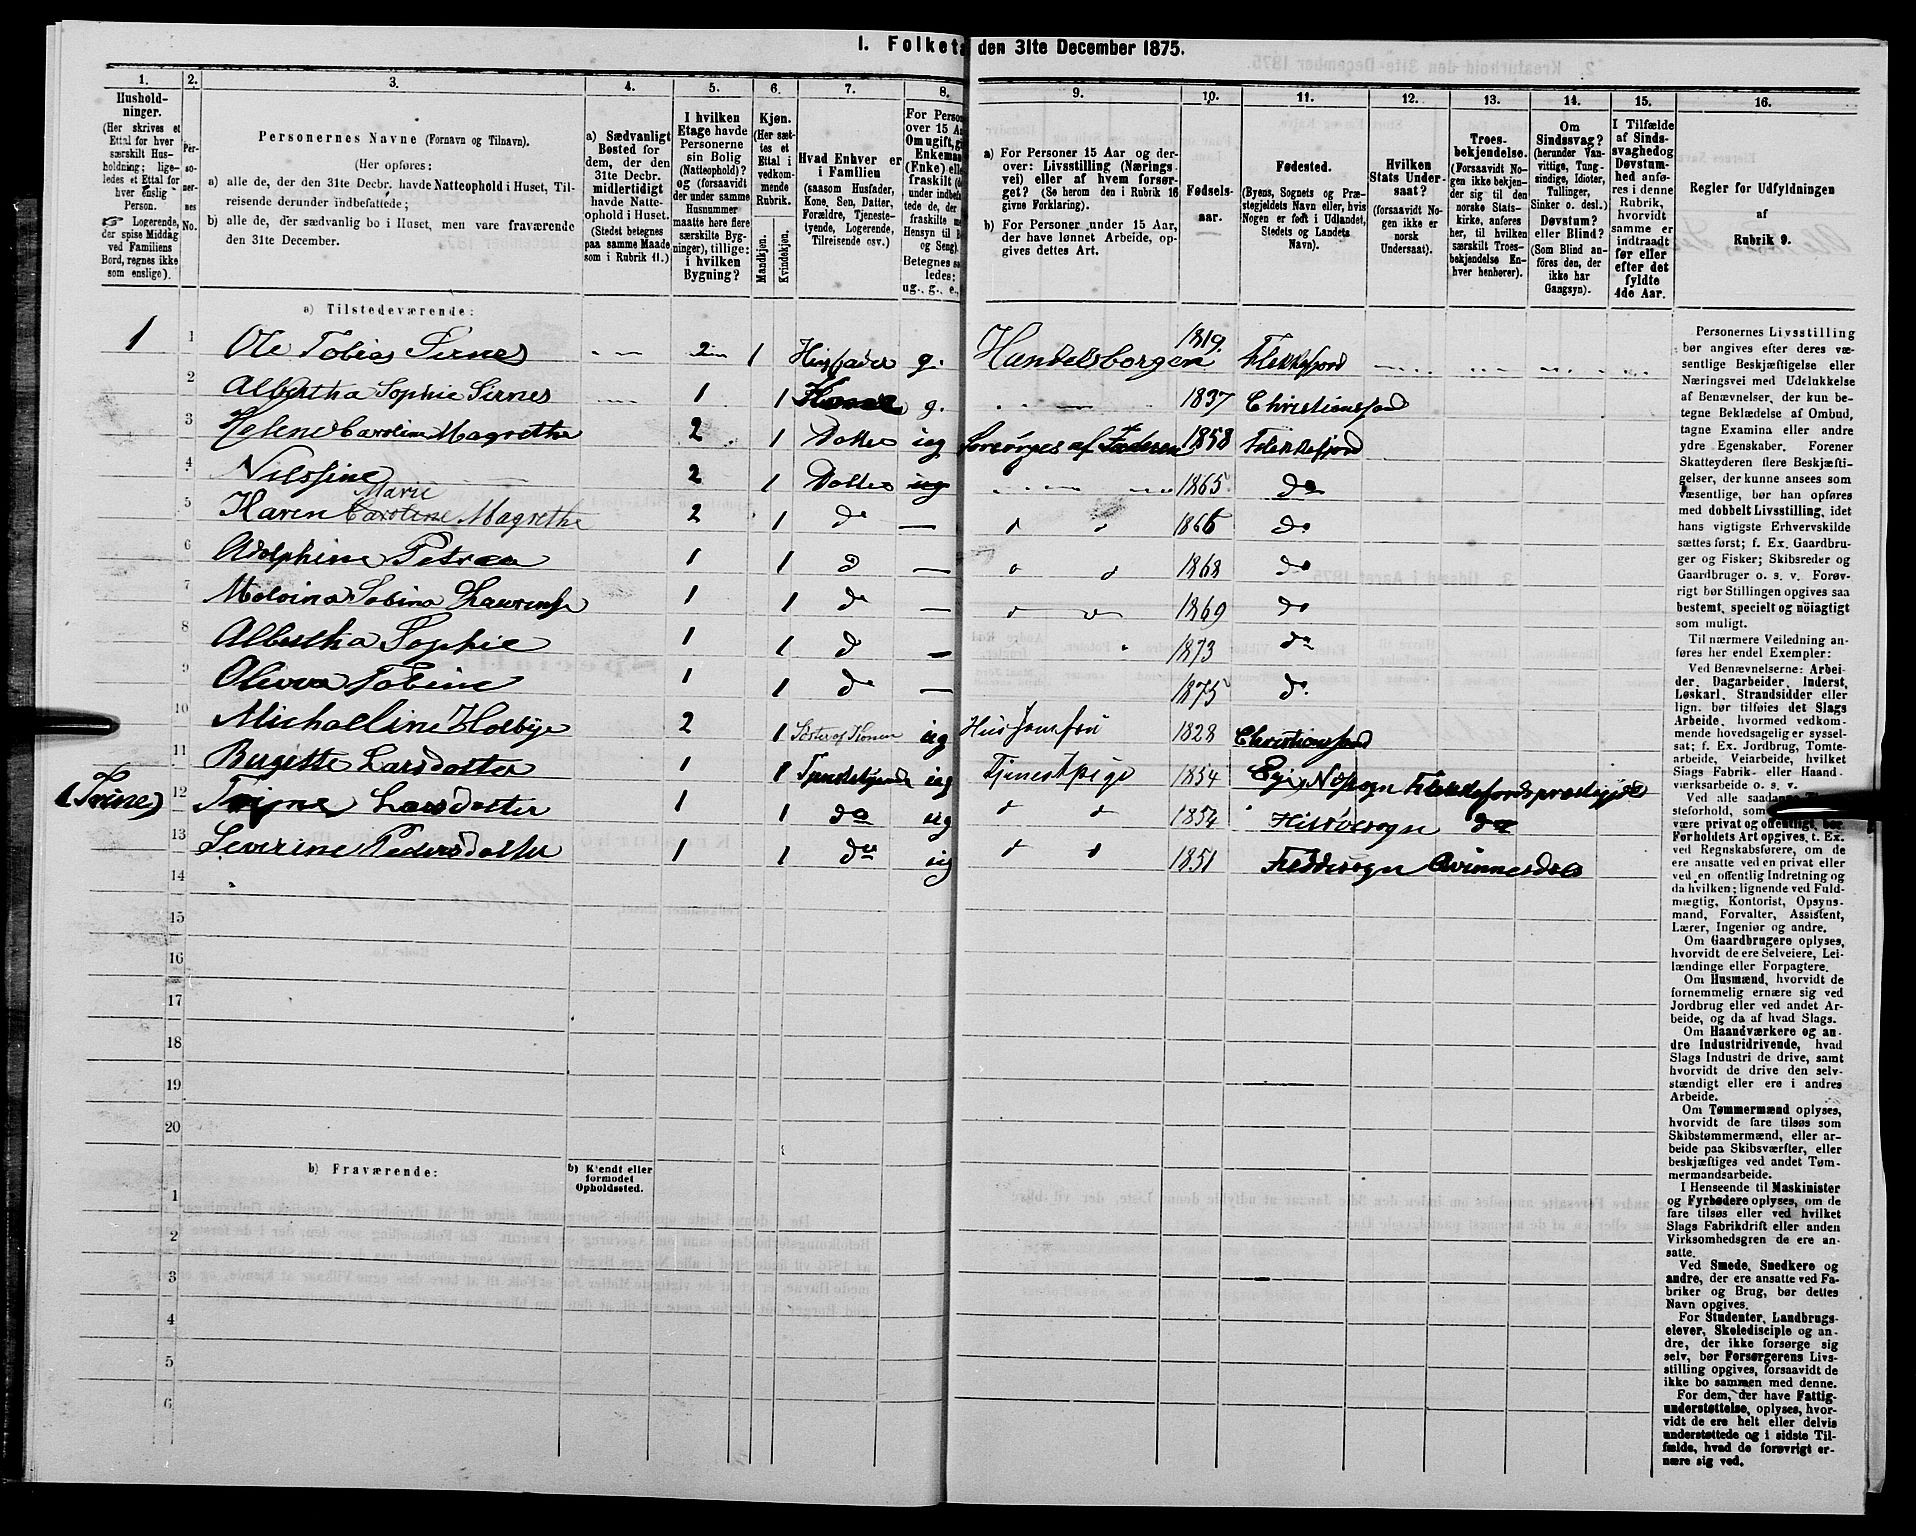 I. Folketæ den 31te December 1875.
1. 2. 3. 4. 5. 6. 7. 8. 9. 10. 11. 12. 13. 14. 15. 16.
Hushold-
ninger.
(Her skrives et
Ettal for hver
særskilt Hus-
holdning; lige-
ledes et Ettal for
hver enslig
Person.
Logerende,
der spise Middag
ved Familiens
Bord, regnes ikke
som enslige).
Per-
so-
ner-
nes
No.
Personernes Navne (Fornavn og Tilnavn).
(Her opføres:
a) alle de, der den 31te Decbr. havde Natteophold i Huset, Til-
reisende derunder indbefattede;
b) alle de, der sædvanlig bo i Huset, men vare fraværende
den 31te December.
a) Sædvanligt
Bosted for
dem, der den
31te Decbr.
midlertidigt
havde Natte-
ophold i Huset.
(Stedet betegnes
paa samme Maade
som i Rubrik 11.)
I hvilken
Etage havde
Personerne
sin Bolig
(Natteophold)?
og (forsaavidt
der under samme
Husnummer
maatte høre flere
særskilte Byg-
ninger), tillige:
i hvilken
Bygning?
Kjøn.
(Her sæt-
tes et
Ettal i
vedkom-
mende
Rubrik.
Mandkjøn.
Kvindekjøn.
Hvad Enhver er
i Familien
(saasom Husfader,
Kone, Søn, Datter,
Forældre, Tjeneste-
tyende, Logerende,
Tilreisende osv.)
For Person
over 15 Aa
Omugift, g
Enkeman
(Enke) elle
fraskilt (d
under indbe
tede de, der
fraskilte me
Hensyn til B
og Seng).
Betegnes sa
ledes:
ug., g., e.,
a) For Personer 15 Aar og der-
over: Livsstilling (Nærings-
vei) eller af hvem forsør-
get? (Se herom den i Rubrik 16
givne Forklaring).
b) For Personer under 15 Aar,
der have lønnet Arbeide, op-
gives dettes Art.
Fødsels-
aar.
Fødested.
(Byens, Sognets og Præ-
stegjeldets Navn eller, hvis
Nogen er født i Udlandet,
Stedets og Landets
Navn).
Hvilken
Stats Under-
saat?
(forsaavidt No-
gen ikke er
norsk
Undersaat).
Troes-
bekjendelse.
(Forsaavidt No-
gen ikke bekjen-
der sig til den
norske Stats-
kirke, anføres
her, til hvilken
særskilt Troes-
bekjendelse En-
hver henhører).
Om
Sindssvag?
(herunder Van-
vittige, Tung-
sindige, Idioter,
Tullinger,
Sinker o. desl.)
Døvstum?
eller Blind?
(Som Blind an-
føres den, der
ikke har
Gangsyn).
I Tilfælde
af Sinds-
svaghed og
Døvstum-
hed anfø-
res i denne
Rubrik,
hvorvidt
samme er
indtraadt
før eller
efter det
fyldte
4de Aar.
Regler for Udfyldningen
af
Rubrik 9.
a) Tilstedeværende:
1 1 Ole Tobias Sirnes 2 1 Husfader g. Handelsborger 1819. Flekkefjord
2 Albertha Sophie Sirnes 1 1 Kone g. 1837 Christianssand
3 Helene Caroline Magrethe 2 1 Datter ug Forsørges af Faderen 1858 Flekkefjord
4 Nilssine 2 1 Datter ug 1865 do
5 Karen Marie Caroline Magrethe 2 1 do 1866 do
6 Adolphine Petrea 1 1 d 1868 do
7 Malvina Tobina Laurense 1 1 do 1869 do
8 Albertha Sophie 1 1 d 1873 do
9 Olevea Tobine 1 1 do 1875 do
10 Michaeline Holbye 2 1 Søster af Konen ug Husjomfru 1828 Christianssand
11 Birgitte Larsdatter 1 1 Tjenestetyende ug Tjenestpige 1854 Egi, Næs sogn Flekkefjords præstegjeld
(Trine) 12 Trine Larsdatter 1 1 do ug 1854 Hitterøesogn do
13 Severine Pedersdatter 1 1 do ug 1851 Feddesogn Qvinnesdal
14
15
16
17
18
19
20
b) Fraværende: b) Kjendt eller
formodet
Opholdssted.
1
2
3
4
5
6
Personernes Livsstilling
bør angives efter deres væ-
sentlige Beskjæftigelse eller
Næringsvei med Udelukkelse
af Benævnelser, der kun be-
tegne Beklædelse af Ombud,
tagne Examina eller andre
ydre Egenskaber. Forener
Skatteyderen flere Beskjæfti-
gelser, der kunne ansees som
væsentlige, bør han opføres
med dobbelt Livsstilling, idet
hans vigtigste Erhvervskilde
sættes først; f. Ex. Gaardbru-
ger og Fisker; Skibsreder og
Gaardbruger o. s. v. Forøv-
rigt bør Stillingen opgives saa
bestemt, specielt og nöiagtigt
som muligt.
Til nærmere Veiledning an-
føres her endel Exempler:
Ved Benævnelserne: Arbei-
der, Dagarbeider, Inderst,
Løskarl, Strandsidder eller
lign. bør tilføies det Slags
Arbeide, hvormed vedkom-
mende hovedsagelig er syssel-
sat; f. Ex. Jordbrug, Tomte-
arbeide, Veiarbeide, hvilket
Slags Fabrik- eller Haand-
værksarbeide o. s. v.
Ved alle saadanne
steforhold, som
være privat og offentligt, bør
Forholdets Art opgives, t. Ex.
ved Regnskabsførere, om de
ere ansatte ved en privat eller
ved en offentlig Indretning og
da hvilken; lignende ved Fuld-
mægtig, Kontorist, Opsyns-
mand, Forvalter, Assistent,
Lærer, Ingeniør og andre.
Om Gaardbrugere oplyses,
hvorvidt de ere Selveiere, Lei-
lændinge eller Forpagtere.
Om Husmænd, hvorvidt de
fornemmelig ernære sig ved
Jordbrug eller ved andet Ar-
beide, og da af hvad Slags.
Om Haandværkere og an-
dre Industridrivende, hvad
Slags Industri de drive, samt
hvorvidt de drive den selv-
stændigt eller ere i andres
Arbeide.
Om Tømmermænd oplyses,
hvorvidt de fare tilsøs som
Skibstømmermænd, eller ar-
beide paa Skibsværfter, eller
beskjæftiges ved andet Tøm-
mermandsarbeide.
I Henseende til Maskinister
og Fyrbødere oplyses, om de
fare tilsøs eller ved hvilket
Slags Fabrikdrift eller anden
Virksomhedsgren de ere an-
satte.
Ved Smede, Snedkere og
andre, der ere ansatte ved Fa-
briker og Brug, bør dettes
Navn opgives.
For Studenter, Landbrugs-
elever, Skoledisciple og an-
dre, der ikke forsørge sig
selv, bør Forsørgerens Livs-
stilling opgives, forsaavidt de
ikke bo sammen med denne.
For dem, der have Fattig-
understøttelse, oplyses, hvor-
vidt de ere helt eller delvis
understøttede og i sidste Til-
fælde, hvad de forøvrigt er-
nære sig ved.